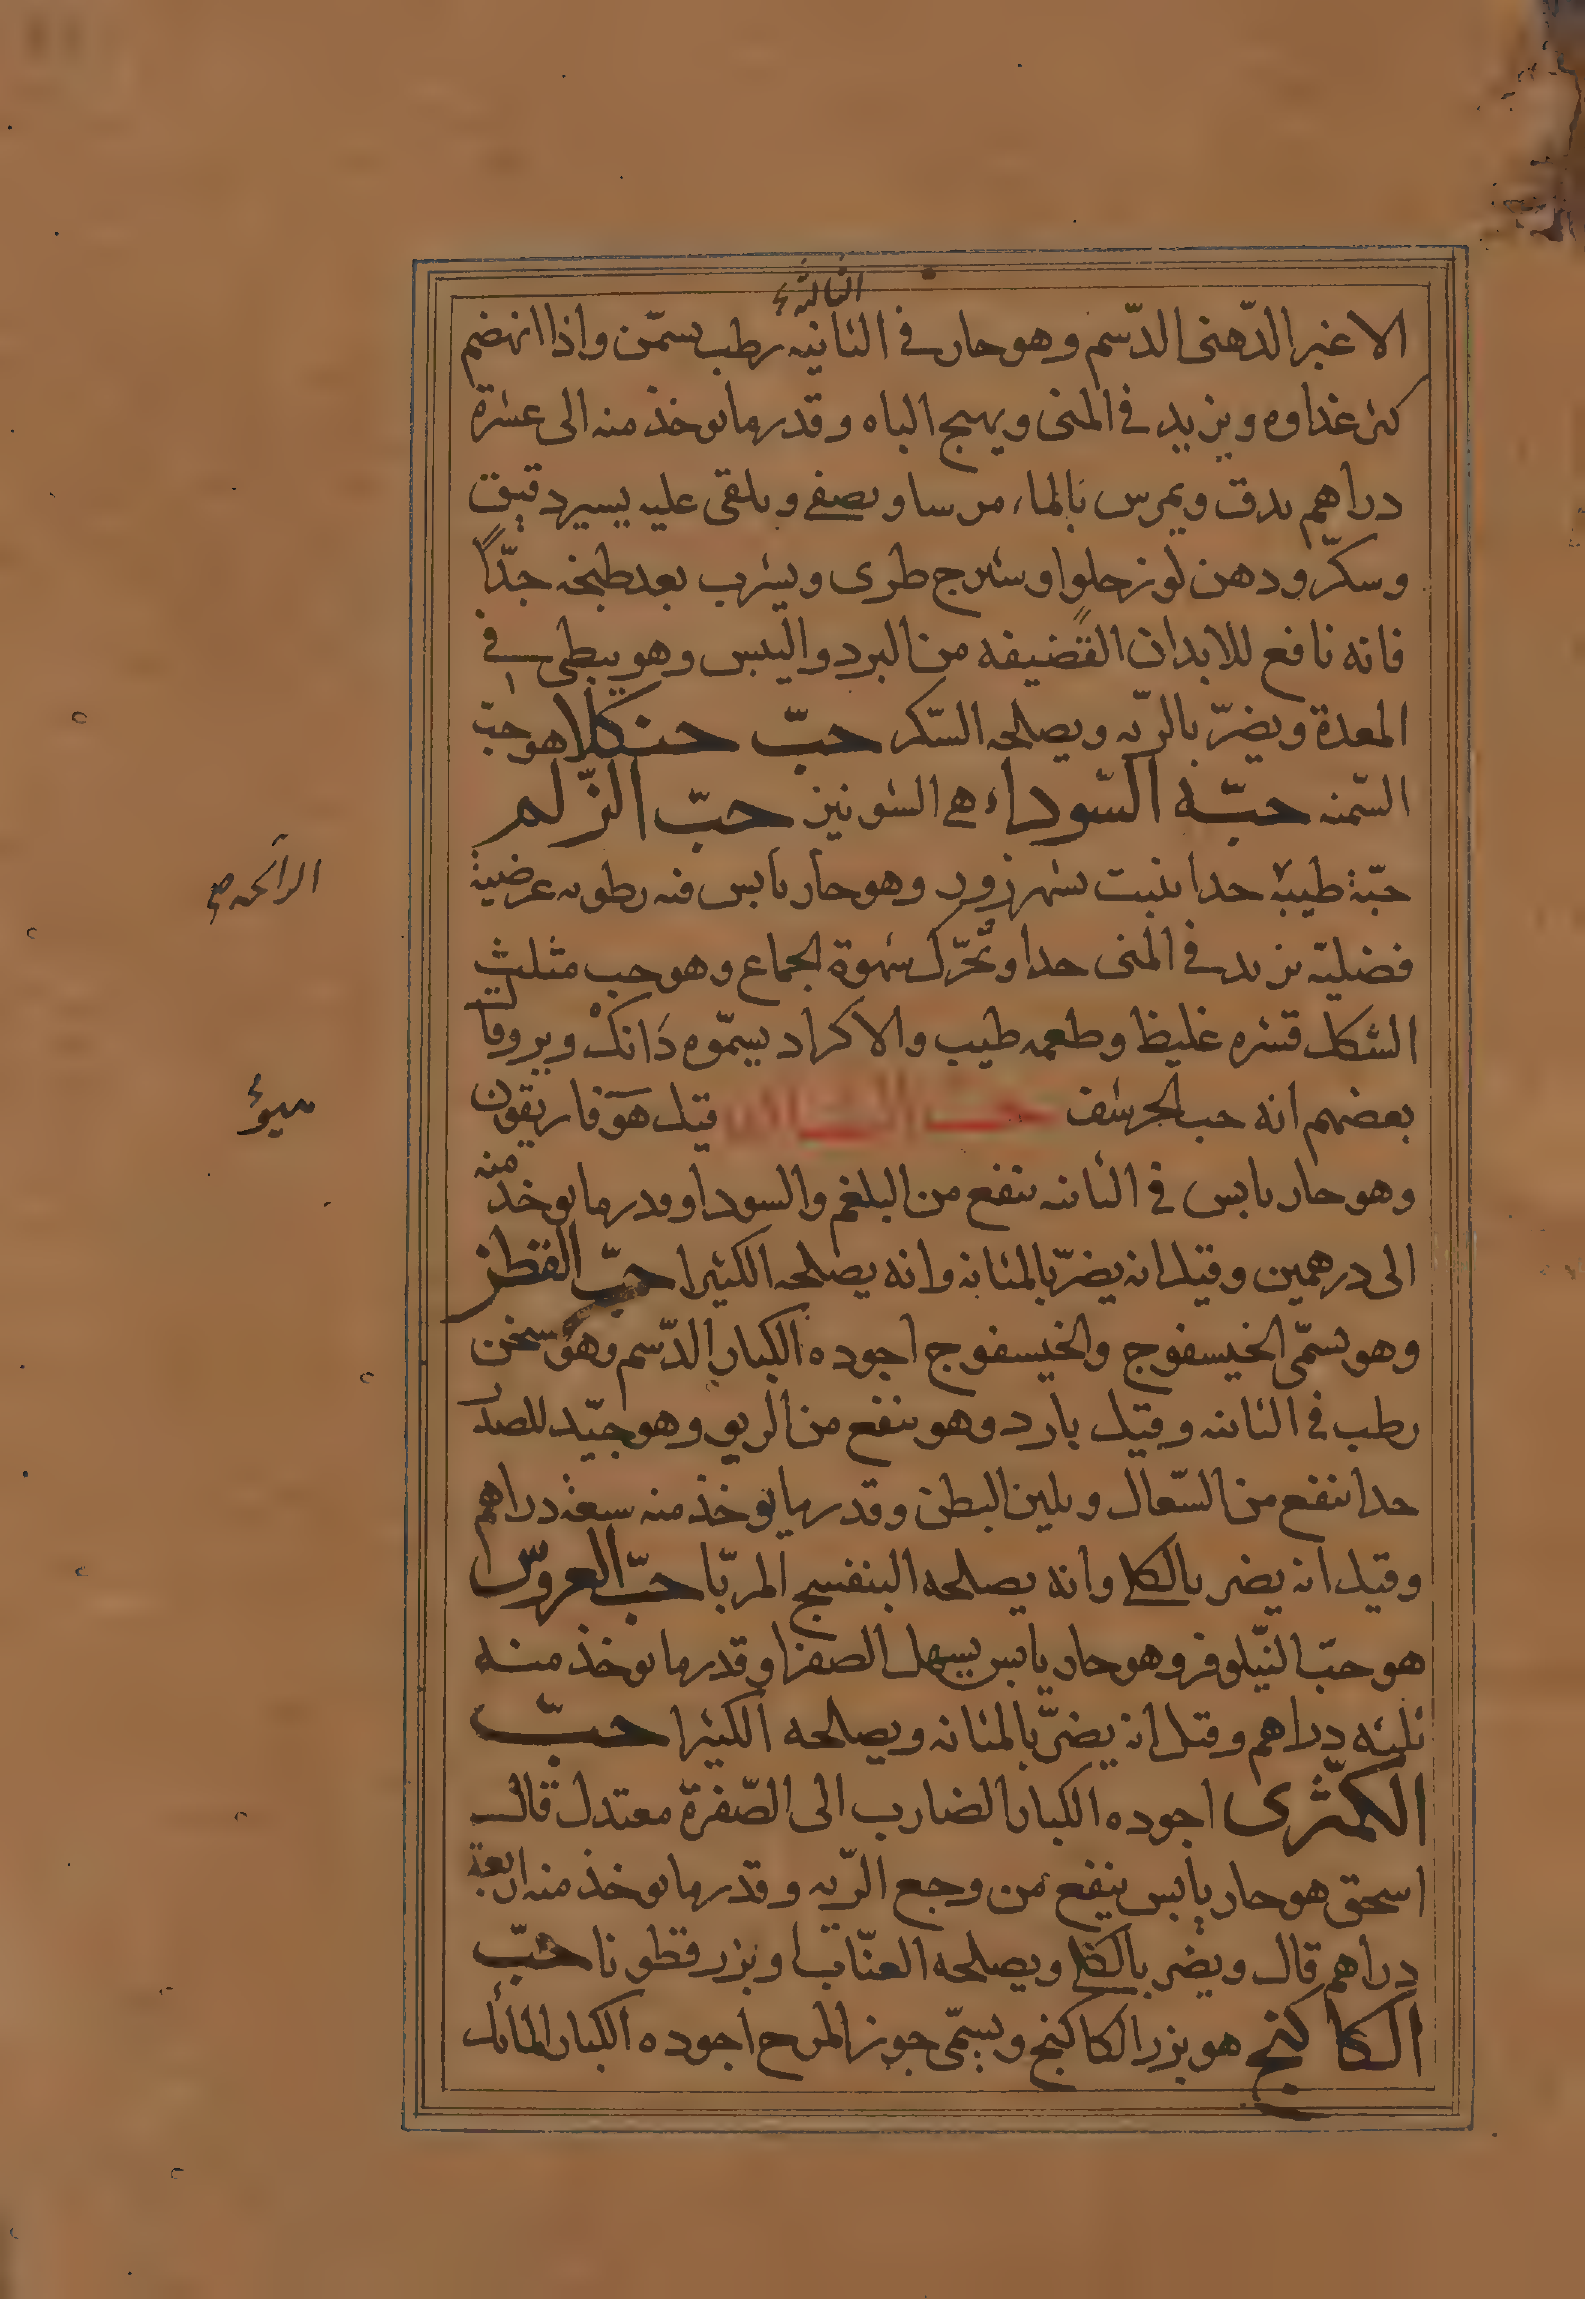 الثالثة
الاغبر الدّهنى الدّسم وهو حار فى الثانيه رطب يسمّن واذا انهضم
كثر غداوه ويزيد فى المنى ويهيج الباه وقدر ما يوخذ منه الى عشرة
دراهم يدق ويمرس بالماء مرسا ويصفى ويلقى عليه يسير دقيق
وسكّر ودهن لوز حلو او شيرج طرى ويشرب بعد طبخه جدّاً
فانه نافع للابدان القضيفه من البرد واليبس وهو يبطى فى
المعدة ويضرّ بالريّه ويصلحه السّكر حبّ حنكلا هو حبّ
السّمنه حبّه السّوداء هى الشونيز حبّ الزّلم
حبّة طيبة حدا ينبت بشهرزور وهو حار يابس فيه رطوبه عرضية
الرائحه صح
فضلية يزيد فى المنى حدا وتحّرك شهوة الجماع وهو حب مثلث
الشكل قشره غليظ وطعمه طيب والاكراد يسمّوه دَانكْ ويروقا
بعضهم انه حب الحرشف قيل هو فاريقون
وهو حار يابس فى الثانيه ينفع من البلغم والسودا وقدر ما يوخذ منه
الى درهمين وقيل انه يضرّ بالمثانه وانه يصلحه الكثيرا حبّ القطن
وهو يسمّى الخيسفوج والخيسفوج اجوده الكبار الدّسم وهو سخن
رطب فى الثانيه وقيل بارد وهو ينفع من الربو وهو جيّد للصدر
حدا ينفع من السّعال ويلين البطن وقدر ما يوخذ منه سبعة دراهم
وقيل انه يضر بالكلا وانه يصلحه البنفسج المربّا حبّ العروس
هو حبّ النّيلوفر وهو حار يابس يسهل الصفرا وقدر ما يوخذ منه
ثلثه دراهم وقيل انه يضرّ بالمثانه ويصلحه الكثيرا حبّ
الكمّثرى اجوده الكبار الضارب الى الصّفرة معتدل قال
اسحق هو حار يابس ينفع من وجع الرّيه وقدر ما يوخذ منه اربعة
دراهم قال ويضر بالكلا ويصلحه العنّاب او بزر قطونا حبّ
الكاكنج هو بزر الكاكنج ويسمّى جوز المرح اجوده الكبار المائل